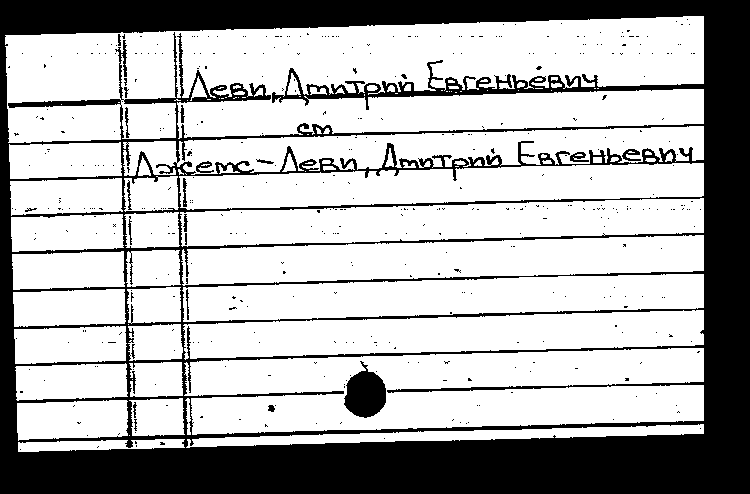 Леви, Дмитрий Евгеньевич
см
Джемс-Леви, Дмитрий Евгеньевич